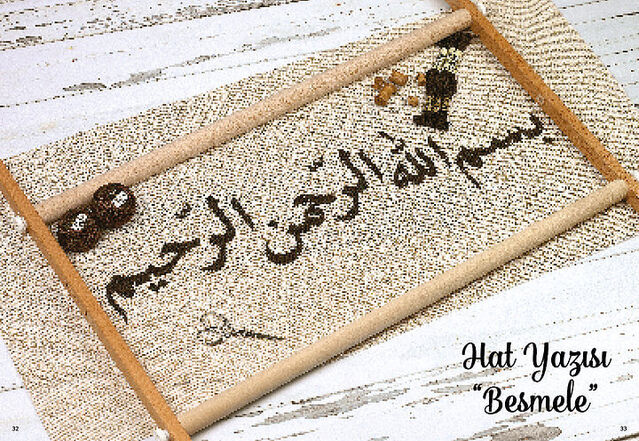 بسم الله الرّحمن الرّحيم
Hat Yazısı
“Besmele”
32
33